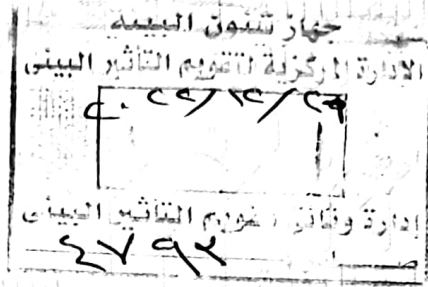 جهاز شئون البيئة
الإدارة المركزية لتقويم التأثير البيئى
٢٠٢٢/١٢/٢٩
إدارة وثائق تقويم التأثير البيئى
٤٧٩٢